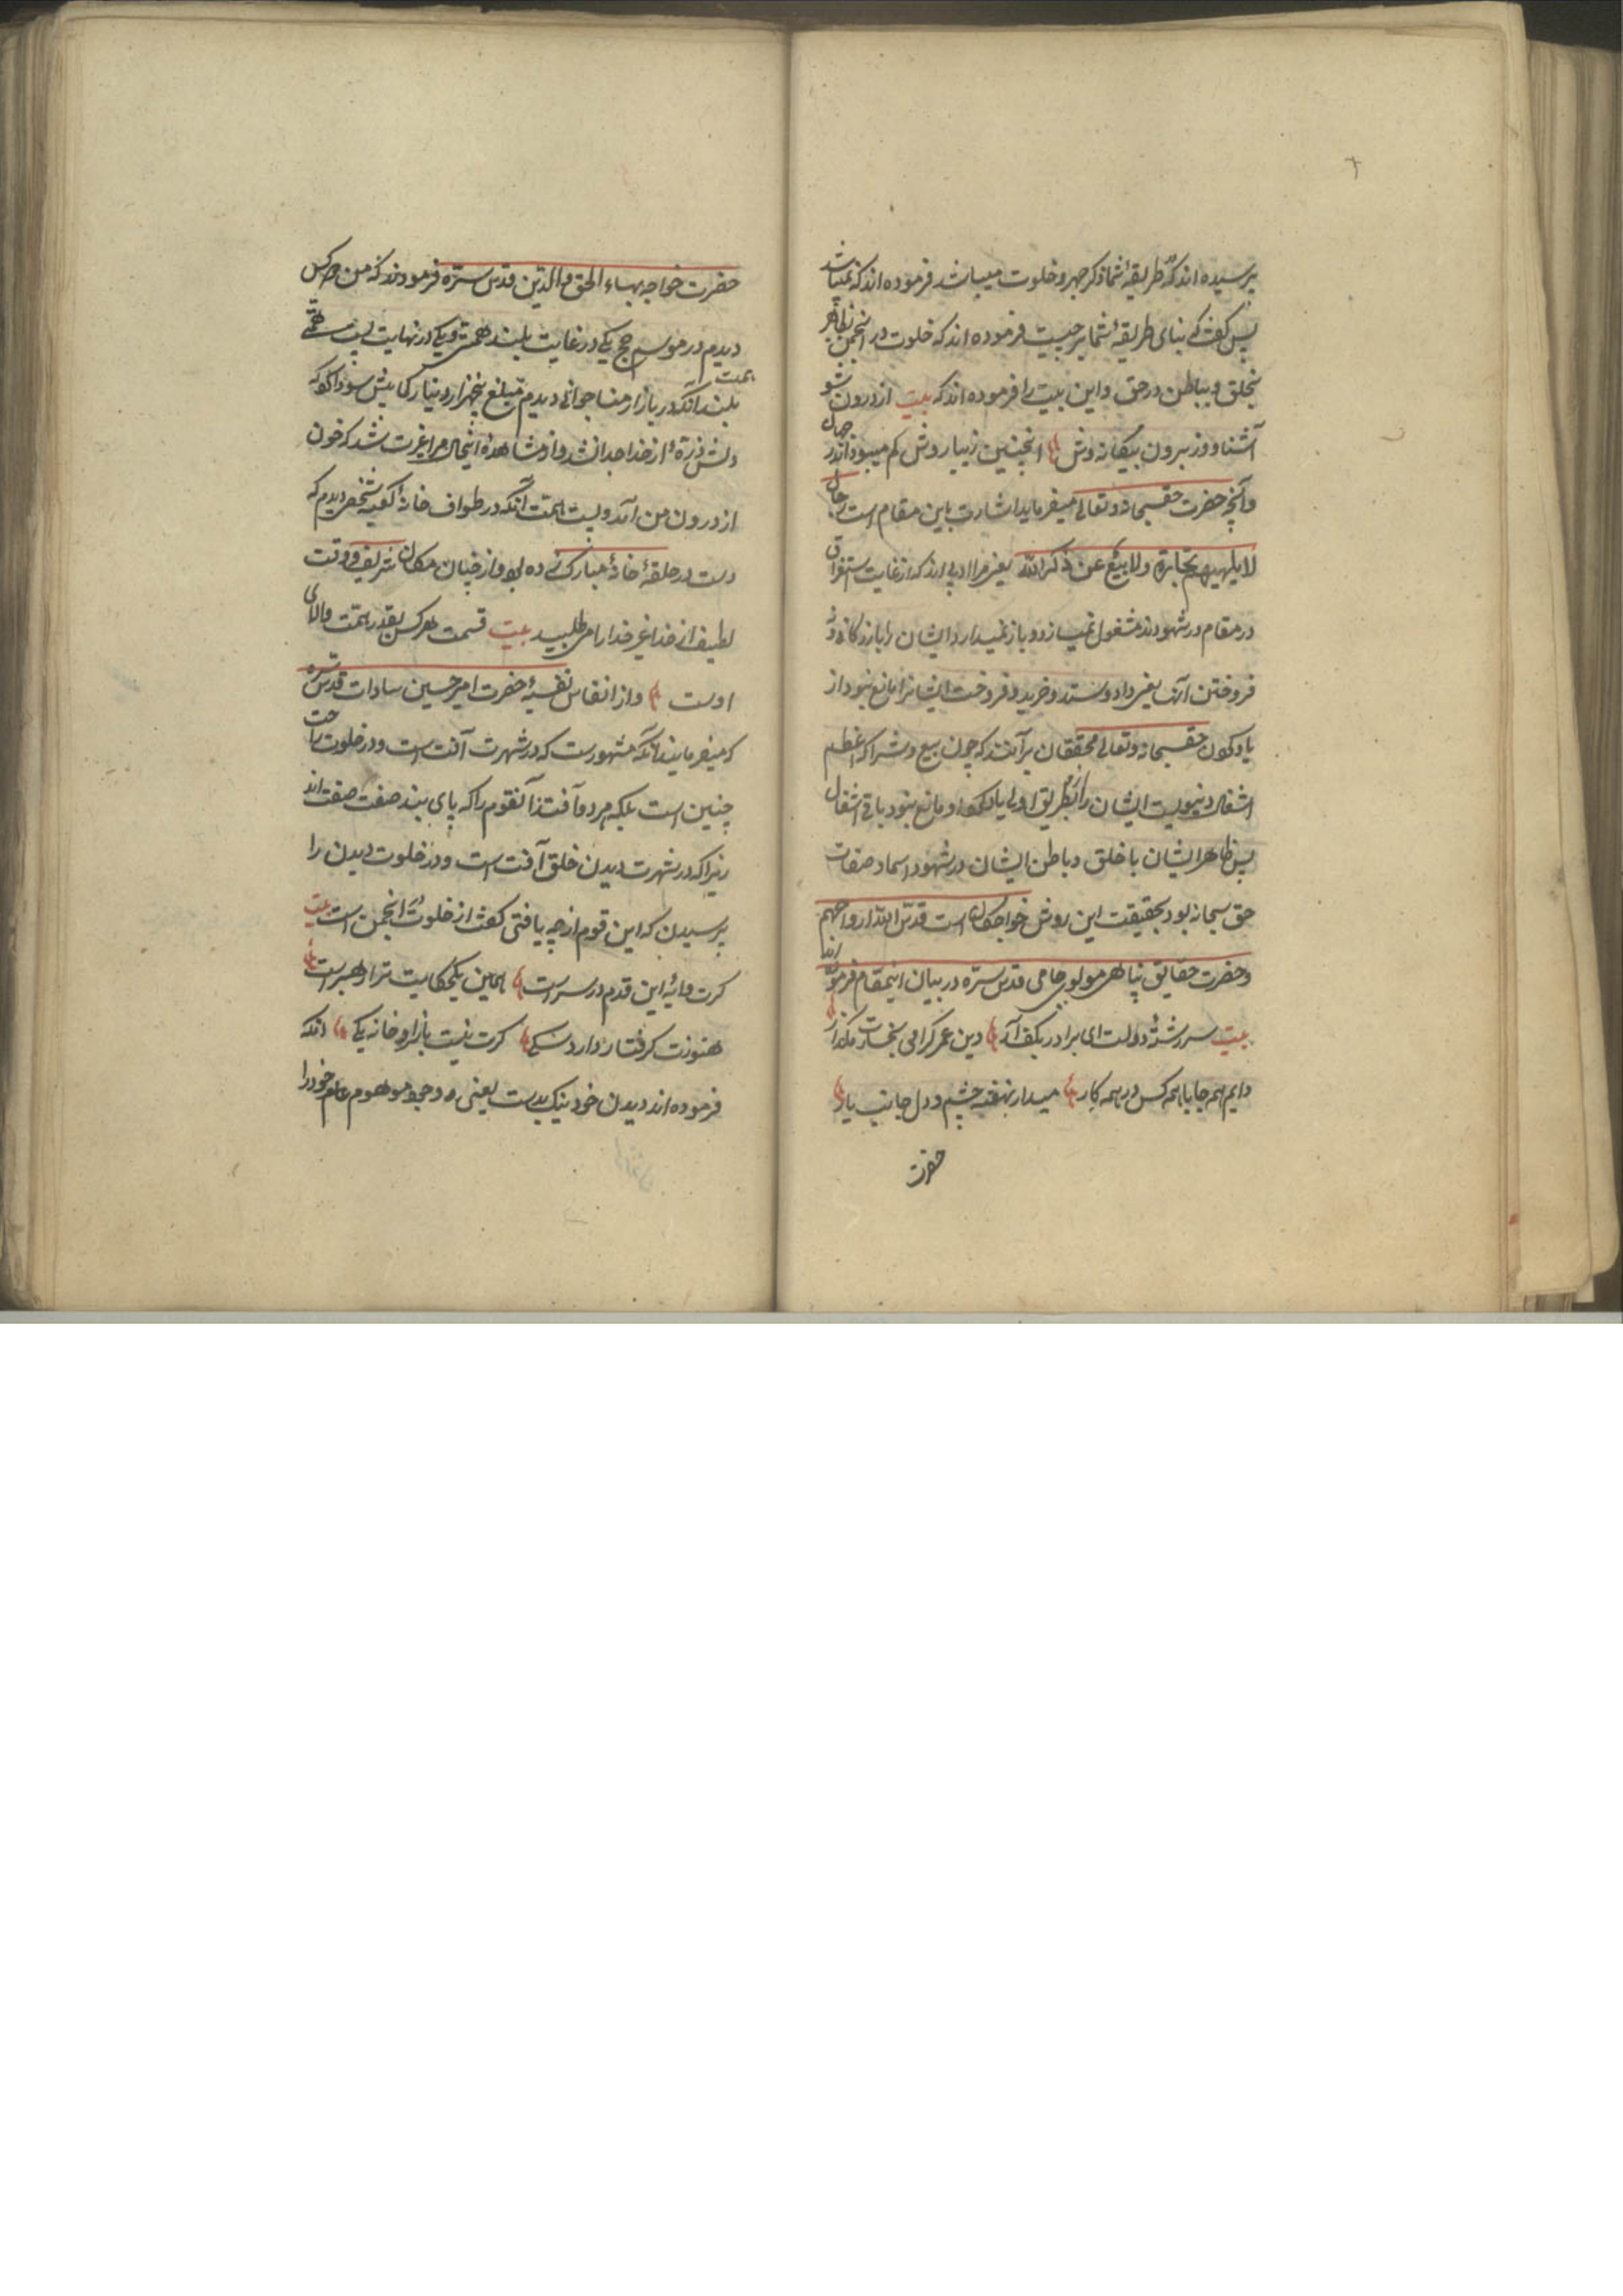 پرسیده اند که طریقهٔ شما ذکر جهر و خلوت میباشد فرموده اند که نمیباشد
پس گفت که بنای طریقهٔ شما بر چیست فرموده اند که خلوت در انجمن بظاهر
بخلق و بباطن در حق و این بیت را فرموده اند که بیت از درون شو
آشنا و وز برون بیگانه وش اینچنین زیبا روش کم میبود اندر جهان
و آنچه حضرت حقسبحانه و تعالی میفرماید اشارت باین مقام است رجال
لا یلهیهم تجارة ولا بیع عن ذکر الله یعنی مراد اند که از غایت استغراق
در مقام در شهودند مشغول نمیسازد و باز نمیدارد ایشان را بازرگانی و نه
فروختن آن یعنی داد و ستد و خرید و فروخت ایشانرا مانع نبود از
یاد کردن حقسبحانه و تعالی محققان برآنند که چون بیع و شرا که اعظم
اشغال دنیویست ایشان را از یاد کرد او مانع نبود باقی اشغال بطریق اولی
پس ظاهر ایشان با خلق و باطن ایشان در شهود اسما و صفات
حق سبحانه بود بحقیقت این روش خواجگان است قدس الله ارواحهم
و حضرت حقایق پناهی مولوی جامی قدس سره در بیان اینمقام فرموده اند
بیت سر رشتهٔ دولت ای برادر بکف آر وین عمر گرامی بخسارت مگذار
دایم همه جا با همه کس در همه کار میدار نهفته چشم و دل جانب یار
حضرت
حضرت خواجه بهاء الحق و الدین قدس سره فرمودند که من دو کس
دیدم در موسم حج یکی در غایت بلند همتی و یکی در نهایت پست همتی
بلند همت آنکه در بازار منا جوانی دیدم مبلغ پنجهزار دینار کما بیش سودا کرد که
دلش ذرهٔ از خدا جدا نشد و از مشاهدهٔ اینحال مرا غیرت شد که خون
از درون من آمد و پست همت آنکه در طواف خانهٔ کعبه شخصی دیدم که
دست در حلقهٔ خانهٔ مبارک زده بود و از چنان مکان شریف و وقت
لطیف از خدا غیر خدا را می طلبید بیت قسمت هر کس بقدر همت والای
اوست و از انفاس نفیسهٔ حضرت امیر حسین سادات قدس سره
که میفرمایند آنکه مشهورست که در شهرت آفت است و در خلوت راحت
چنین است بلکه هر دو آفتند آنقوم را که پای بند صفت صفت اند
زیرا که در شهرت دیدن خلق آفت است و در خلوت دیدن را
پرسیدن که این قوم از چه یافتی گفت از خلوت در انجمن است بیت
گرت مایهٔ این قدم در سر است همین یکحکایت ترا رهبر است
هنوزت گرفتار دارد شکی گرت نیست بازار و خانه یکی آنکه
فرموده اند دیدن خود نیک بدست یعنی وجود موهوم خود را